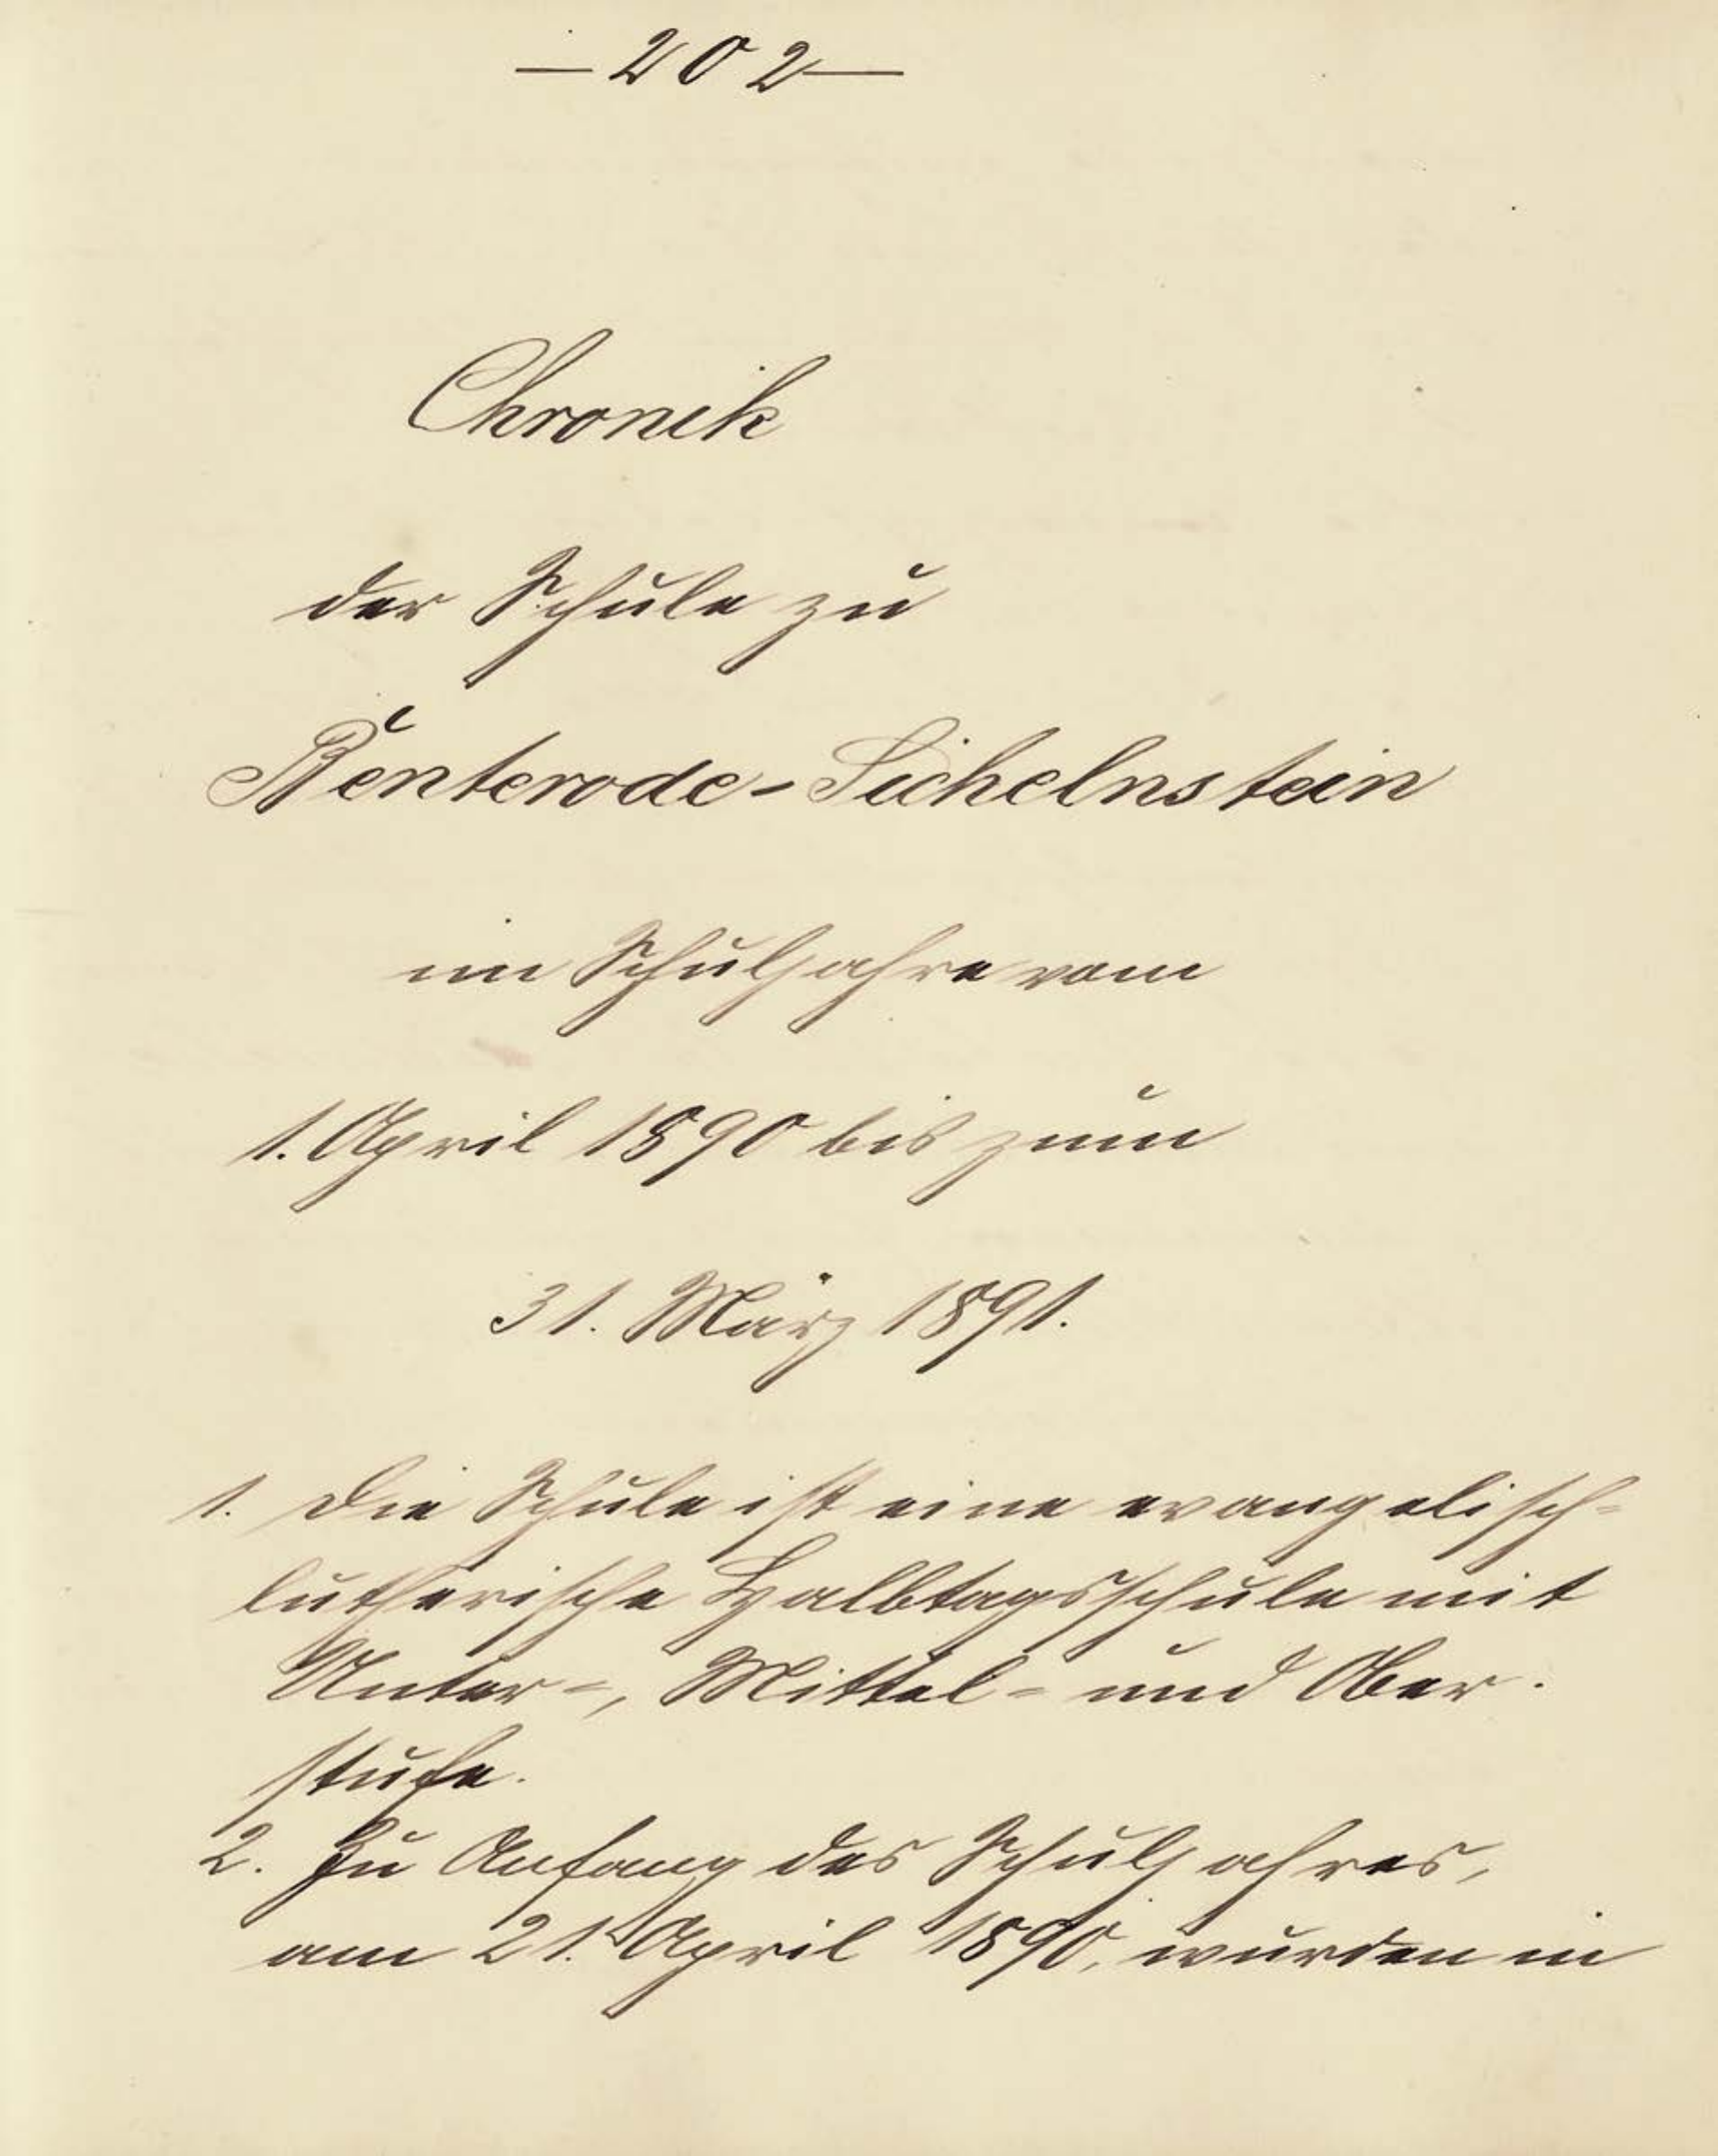 — 202 —
Chronik
der Schule zu
Benterode-Sichelnstein
im Schuljahre vom
1. April 1890 bis zum
31. März 1891.
1. Die Schule ist eine evangelisch-
lutherische Halbtagsschule mit
Unter-, Mittel- und Ober-
stufe.
2. Zu Anfang des Schuljahres,
am 21. April 1890, wurden in